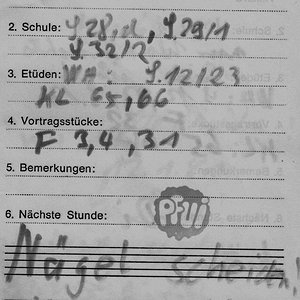 2. Schule: S.28,d, S.29/1
S.32/2
3. Etüden: WH: S.12/23
KL 65,66
4. Vortragsstücke:
F 3,4,31
5. Bemerkungen:
Pfui
6. Nächste Stunde:
Nägel scheiden!